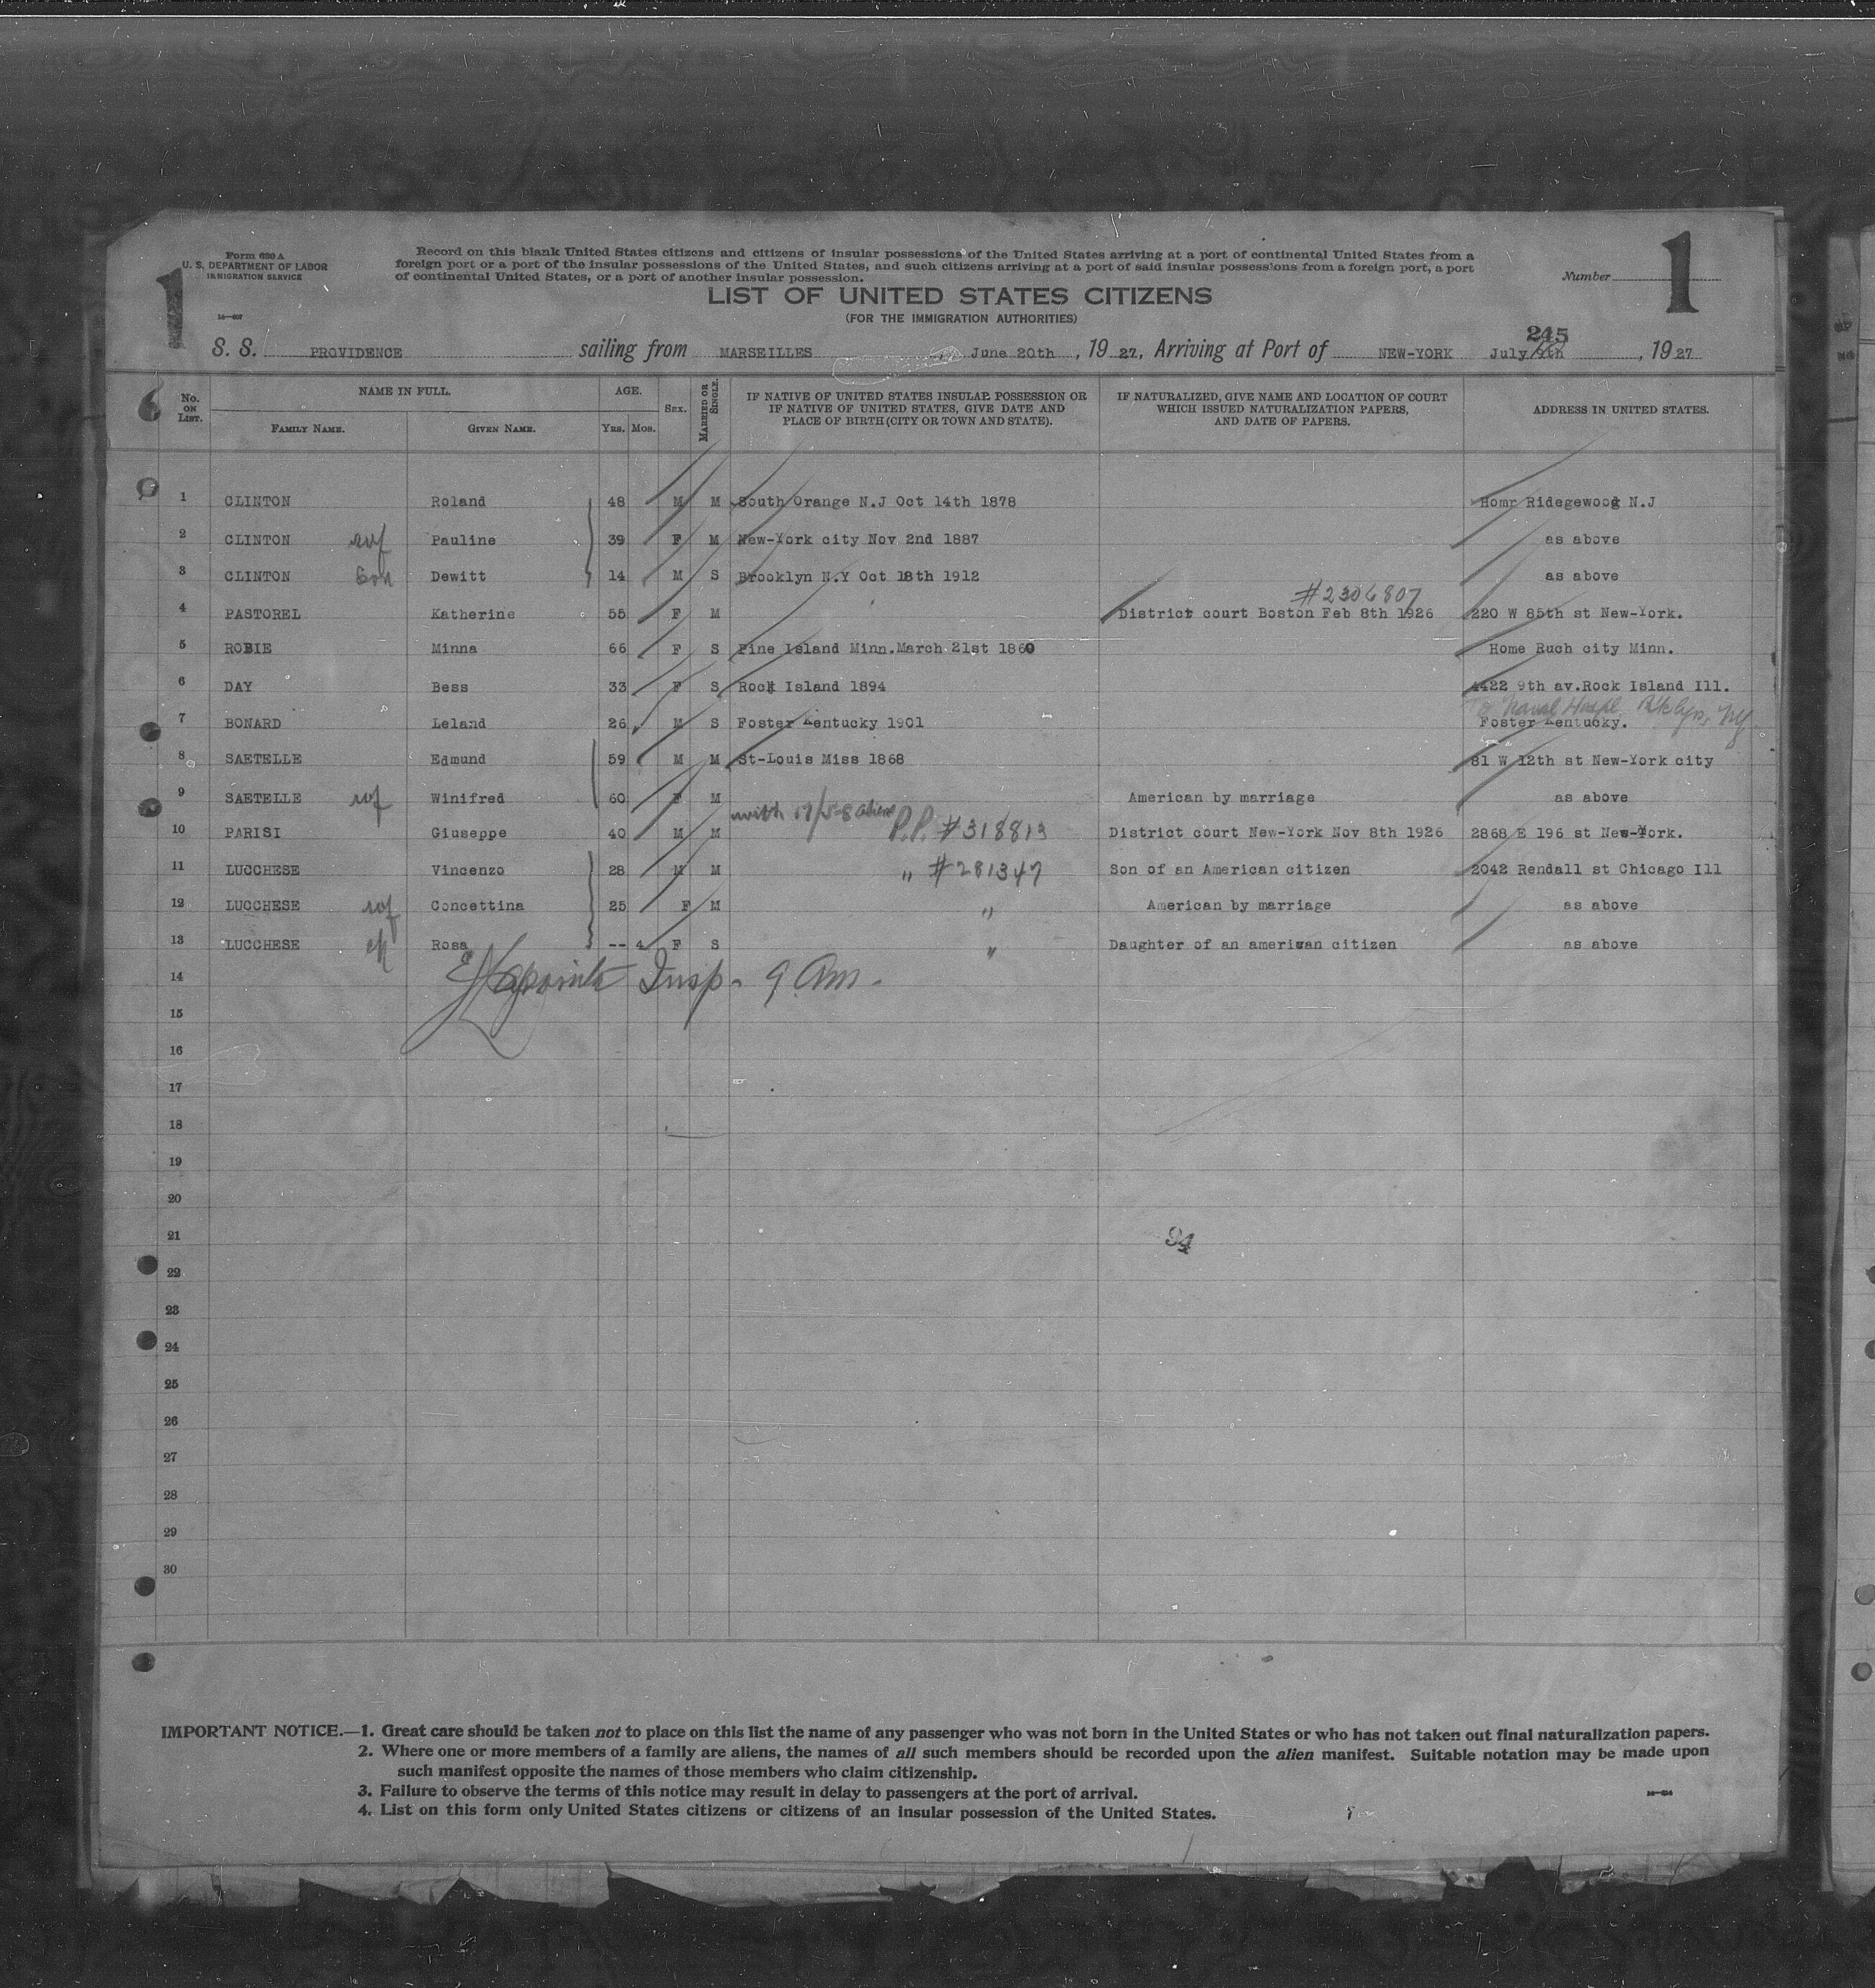 Form 630 A
U. S. DEPARTMENT OF LABOR
IMMIGRATION SERVICE
1
Record on this blank United States citizens and citizens of insular possessions of the United States arriving at a port of continental United States from a
foreign port or a port of the insular possessions of the United States, and such citizens arriving at a port of said insular possessions from a foreign port, a port
of continental United States, or a port of another insular possession.
Number 1
LIST OF UNITED STATES CITIZENS
(FOR THE IMMIGRATION AUTHORITIES)
245
S. S. PROVIDENCE sailing from MARSEILLES June 20th, 1927, Arriving at Port of NEW-YORK July 9th, 1927
No. ON LIST. NAME IN FULL. FAMILY NAME. GIVEN NAME. AGE. YRS. MOS. SEX. MARRIED OR SINGLE. IF NATIVE OF UNITED STATES INSULAR POSSESSION OR IF NATIVE OF UNITED STATES, GIVE DATE AND PLACE OF BIRTH (CITY OR TOWN AND STATE). IF NATURALIZED, GIVE NAME AND LOCATION OF COURT WHICH ISSUED NATURALIZATION PAPERS, AND DATE OF PAPERS. ADDRESS IN UNITED STATES.
1 CLINTON Roland 48 M M South Orange N.J Oct 14th 1878 Homr Ridegewood N.J
2 CLINTON wf Pauline 39 F M New-York city Nov 2nd 1887 as above
3 CLINTON Son Dewitt 14 M S Brooklyn N.Y Oct 18th 1912 as above
#2306807
4 PASTOREL Katherine 55 F M District court Boston Feb 8th 1926 220 W 85th st New-York.
5 ROBIE Minna 66 F S Pine Island Minn.March 21st 1860 Home Ruch city Minn.
6 DAY Bess 33 F S Rock Island 1894 4422 9th av.Rock Island Ill.
To Naval Hospl Bklyn, NY
7 BONARD Leland 26 M S Foster Kentucky 1901 Foster Kentucky.
8 SAETELLE Edmund 59 M M St-Louis Miss 1868 81 W 12th st New-York city
9 SAETELLE wf Winifred 60 F M American by marriage as above
with
10 PARISI Giuseppe 40 M M P.P. #318813 District court New-York Nov 8th 1926 2868 E 196 st New-York.
11 LUCCHESE Vincenzo 28 M M " #281347 Son of an American citizen 2042 Rendall st Chicago Ill
12 LUCCHESE wf Concettina 25 F M " American by marriage as above
13 LUCCHESE ch Rosa -- 4 F S " Daughter of an american citizen as above
14 Insp. 9 Am.
15
16
17
18
19
20
21 94
22
23
24
25
26
27
28
29
30
IMPORTANT NOTICE.—1. Great care should be taken not to place on this list the name of any passenger who was not born in the United States or who has not taken out final naturalization papers.
2. Where one or more members of a family are aliens, the names of all such members should be recorded upon the alien manifest. Suitable notation may be made upon
such manifest opposite the names of those members who claim citizenship.
3. Failure to observe the terms of this notice may result in delay to passengers at the port of arrival.
4. List on this form only United States citizens or citizens of an insular possession of the United States.